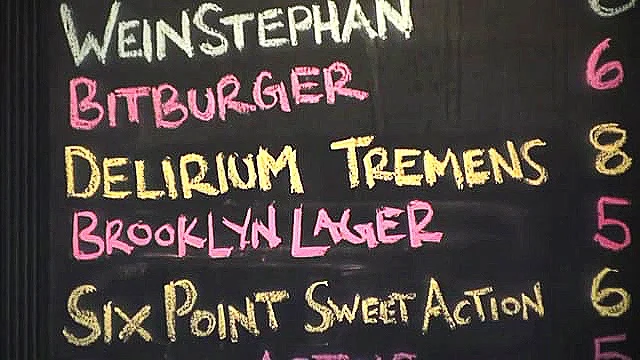 WEINSTEPHAN
BITBURGER 6
DELIRIUM TREMENS 8
BROOKLYN LAGER 5
SIX POINT SWEET ACTION 6
5